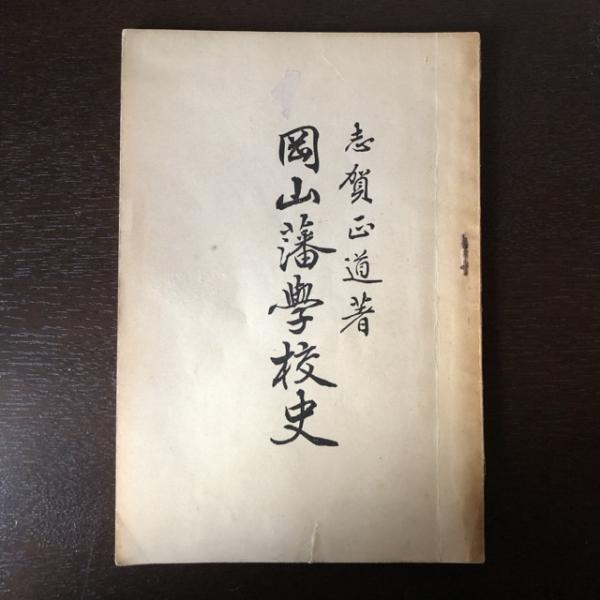 志賀正道著
岡山藩學校史